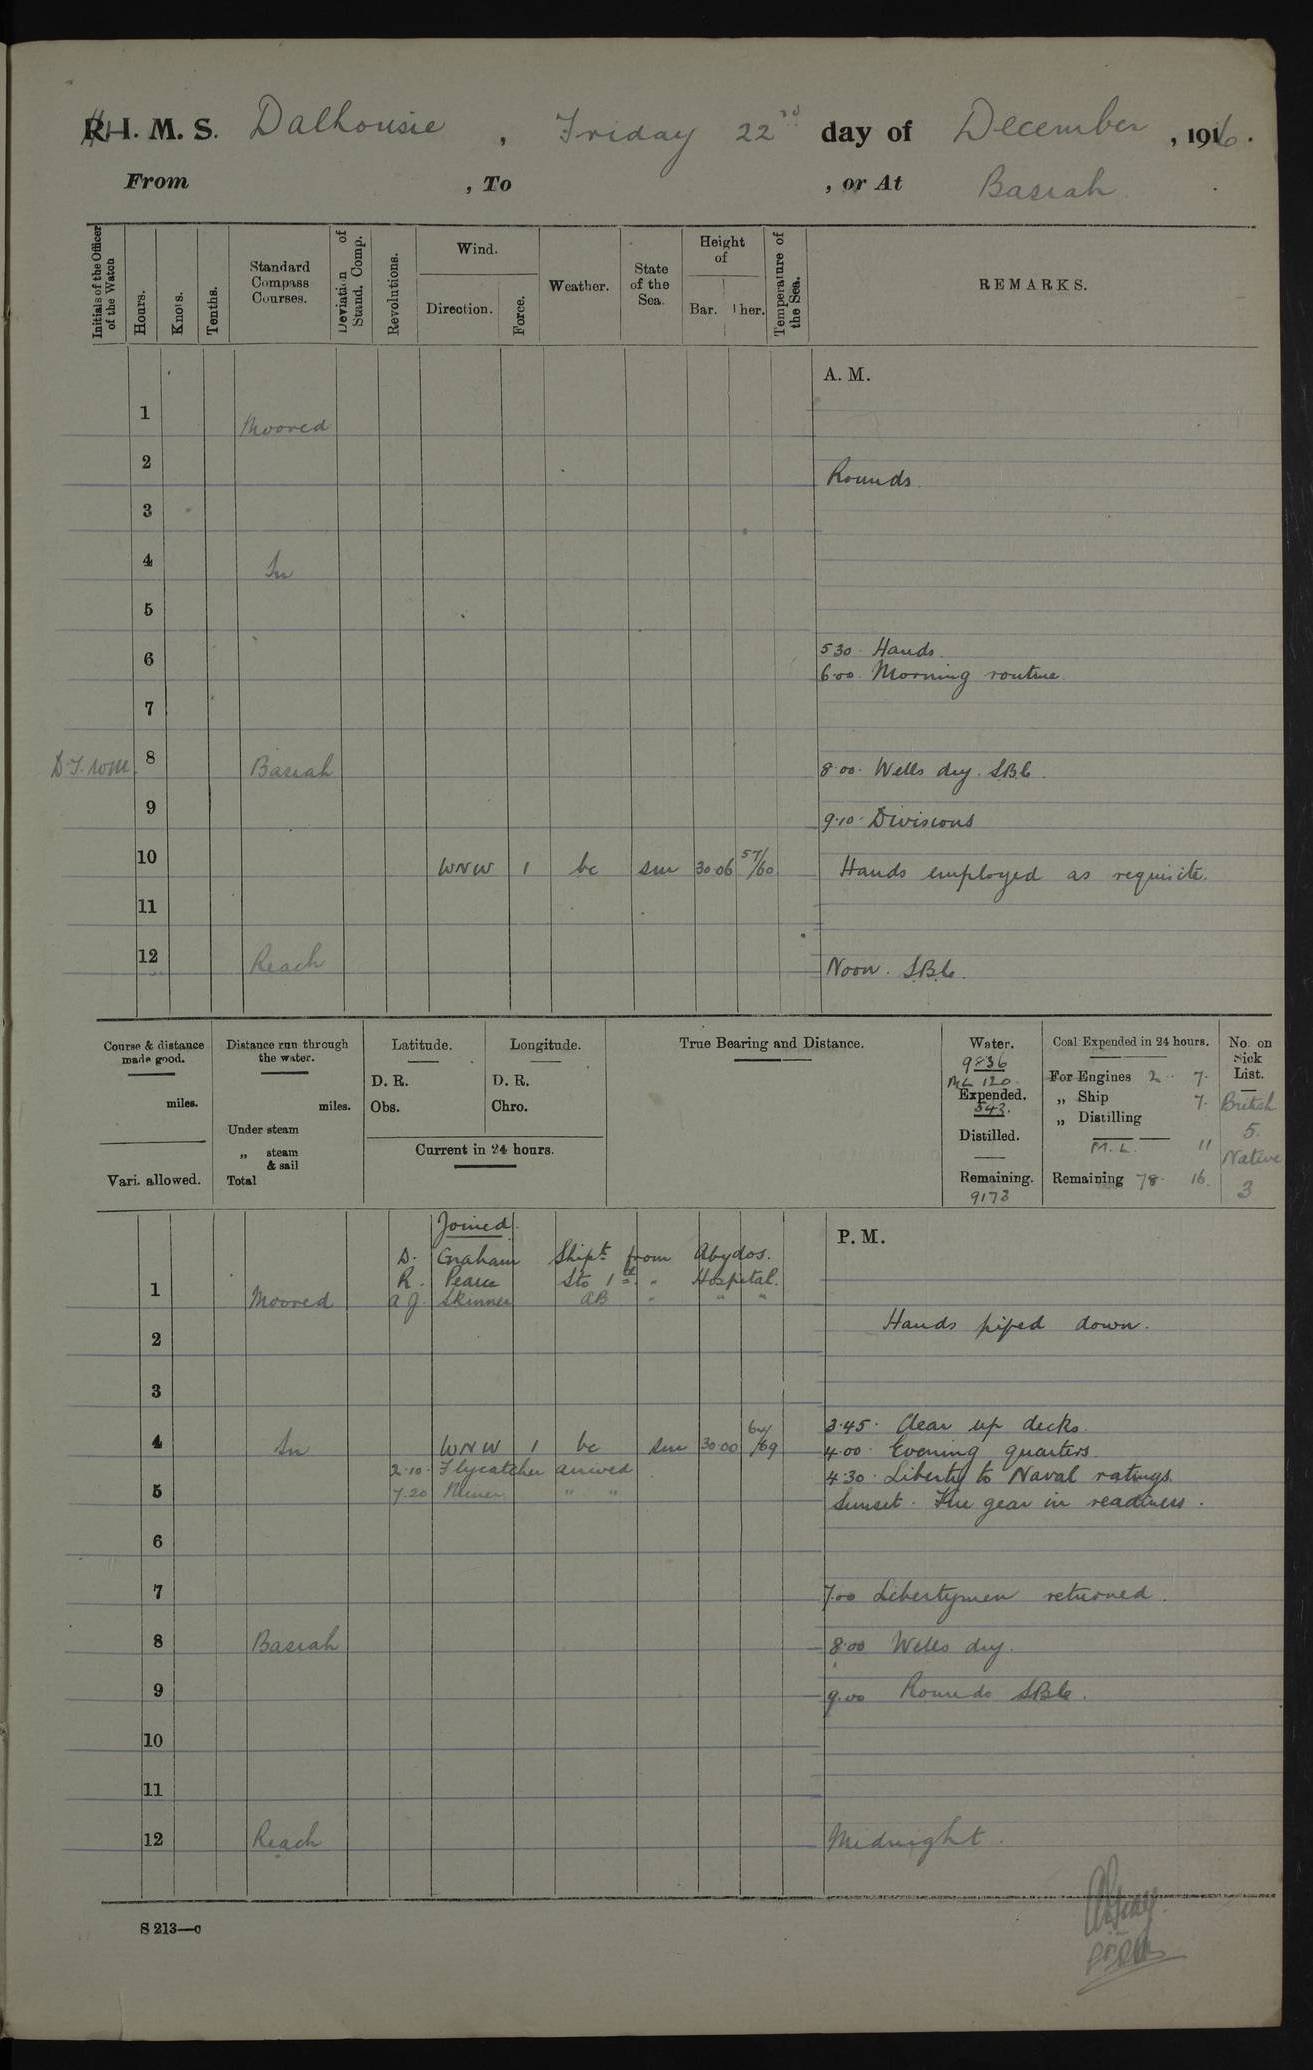 R.I.M.S. Dalhousie, Friday 22nd day of December, 1916.
From , To , or At Basrah
Initials of the Officer of the Watch
Hours.
Knots.
Tenths.
Standard Compass Courses.
Deviation of Stand. Comp.
Revolutions.
Wind.
Direction.
Force.
Weather.
State of the Sea.
Height of
Bar. Ther.
Temperature of the Sea.
REMARKS.
A. M.
1 Moored
2 Rounds.
3
4 In
5
6 5 30. Hands.
6.00. Morning routine.
7
D.T. WM. 8 Basrah 8.00. Wells dry. SB6.
9 9.10. Divisions
10 WNW 1 bc sm 30.06 57/60 Hands employed as requisite.
11
12 Reach Noon. SB6.
Course & distance made good.
miles.
Vari. allowed.
Distance run through the water.
miles.
Under steam
„ steam & sail
Total
Latitude.
D. R.
Obs.
Longitude.
D. R.
Chro.
Current in 24 hours.
True Bearing and Distance.
Water.
9836
ML 120.
Expended.
543.
Distilled.
Remaining.
9173
Coal Expended in 24 hours.
For Engines 2 . 7.
„ Ship 7.
„ Distilling
M. L. 11
Remaining 78. 16.
No. on Sick List.
British
5.
Native
3
P. M.
Joined.
D. Graham Shipt. from Abydos.
R. Pearce Sto 1st " Hospital.
1 Moored A J. Skinner AB " " "
Hands piped down.
2
3
3.45. Clear up decks.
4 In WNW 1 bc sm 30.00 64/69 4.00. Evening quarters.
2.10. Flycatcher arrived 4.30. Liberty to Naval ratings.
5 7.20 Miner " " Sunset. Fire gear in readiness.
6
7 7.00 Libertymen returned.
8 Basrah 8.00 Wells dry.
9 9.00 Rounds SB6.
10
11
12 Reach Midnight.
S 213—c